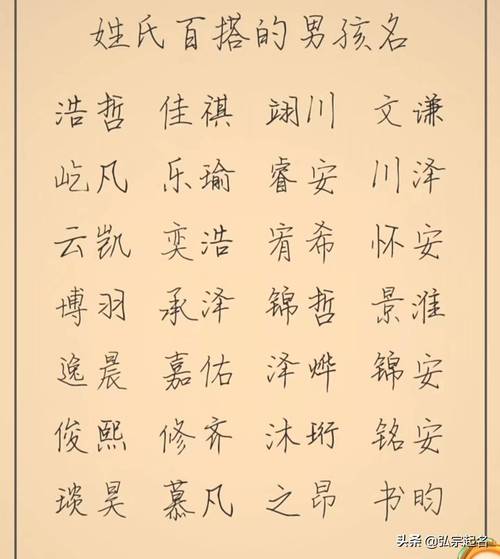 姓氏百搭的男孩名
浩哲 佳祺 翊川 文谦
屹凡 乐瑜 睿安 川泽
云凯 奕浩 宥希 怀安
博羽 承泽 锦哲 景淮
逸晨 嘉佑 泽烨 锦安
俊熙 修齐 沐珩 铭安
琰昊 慕凡 之昂 书昀
头条 @弘宗起名